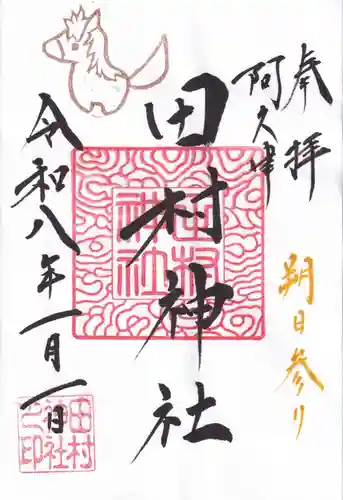 奉拝
阿久津
朔日参り
田村神社
令和八年一月一日
田村神社
田村
神社
之印